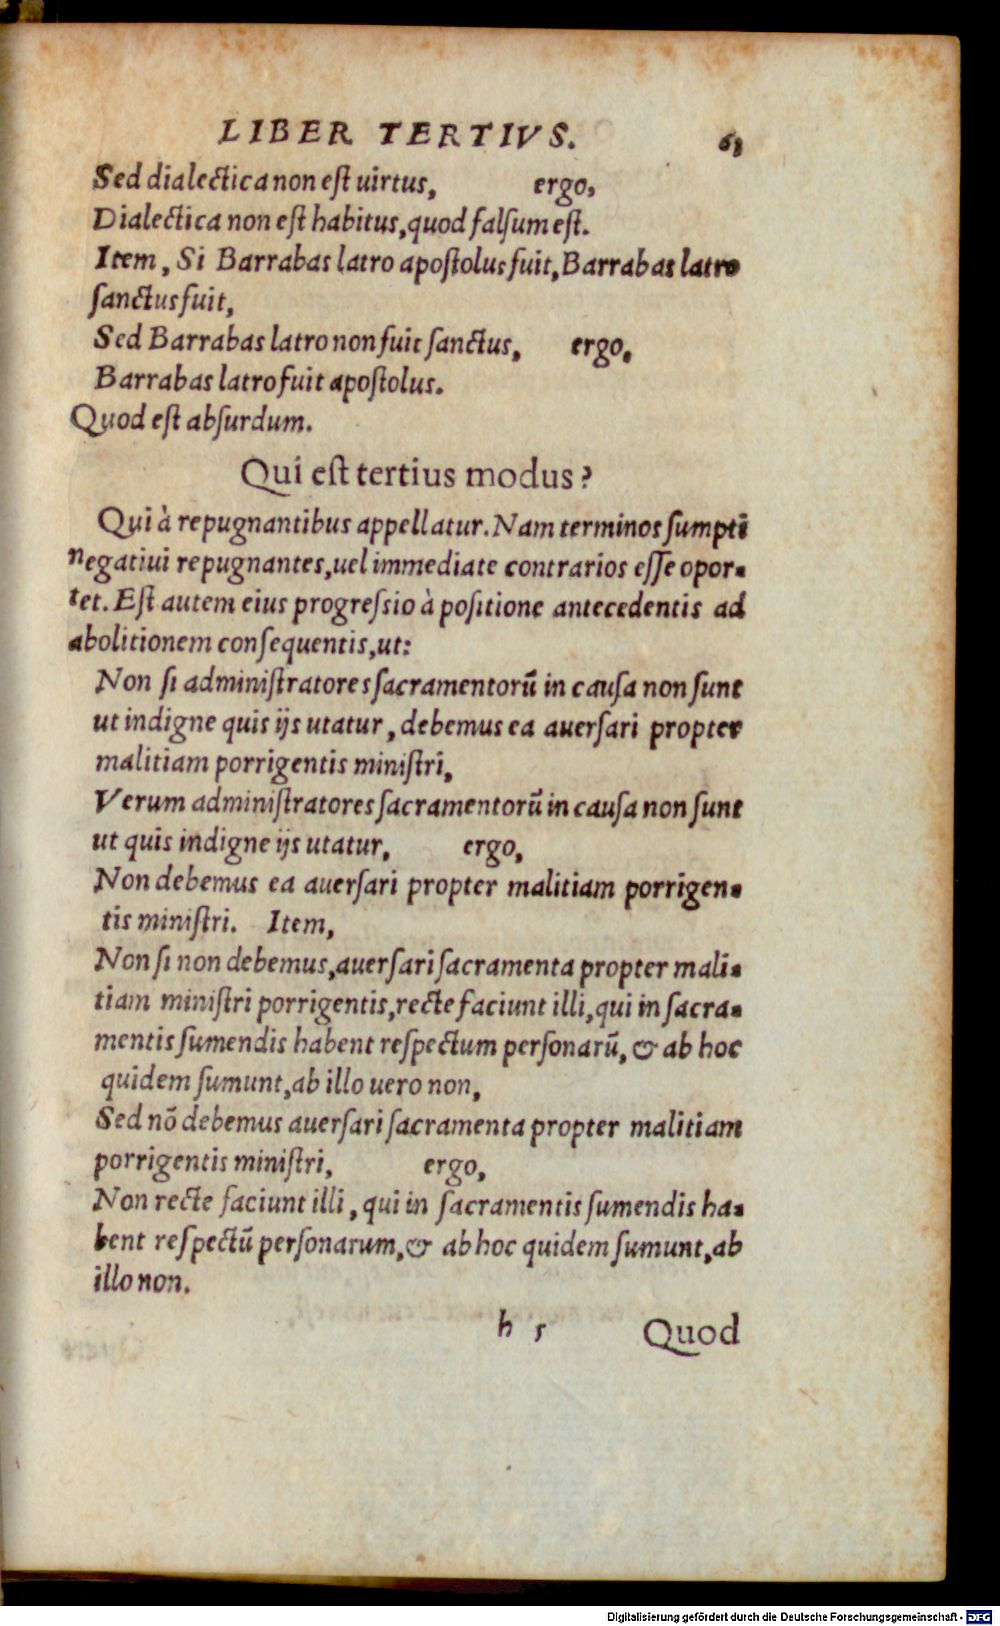 LIBER TERTIVS. 61
Sed dialectica non est uirtus, ergo,
Dialectica non est habitus, quod falsum est.
Item, Si Barrabas latro apostolus fuit, Barrabas latro
sanctus fuit,
Sed Barrabas latro non fuit sanctus, ergo,
Barrabas latro fuit apostolus.
Quod est absurdum.
Qui est tertius modus?
Qui à repugnantibus appellatur. Nam terminos sumpti
negatiui repugnantes, uel immediate contrarios esse opor-
tet. Est autem eius progressio à positione antecedentis ad
abolitionem consequentis, ut:
Non si administratores sacramentorū in causa non sunt
ut indigne quis ijs utatur, debemus ea auersari propter
malitiam porrigentis ministri,
Verum administratores sacramentorū in causa non sunt
ut quis indigne ijs utatur, ergo,
Non debemus ea auersari propter malitiam porrigen-
tis ministri. Item,
Non si non debemus, auersari sacramenta propter mali-
tiam ministri porrigentis, recte faciunt illi, qui in sacra-
mentis sumendis habent respectum personarū, & ab hoc
quidem sumunt, ab illo uero non,
Sed nō debemus auersari sacramenta propter malitiam
porrigentis ministri, ergo,
Non recte faciunt illi, qui in sacramentis sumendis ha-
bent respectū personarum, & ab hoc quidem sumunt, ab
illo non.
h 5 Quod
Digitalisierung gefördert durch die Deutsche Forschungsgemeinschaft - DFG